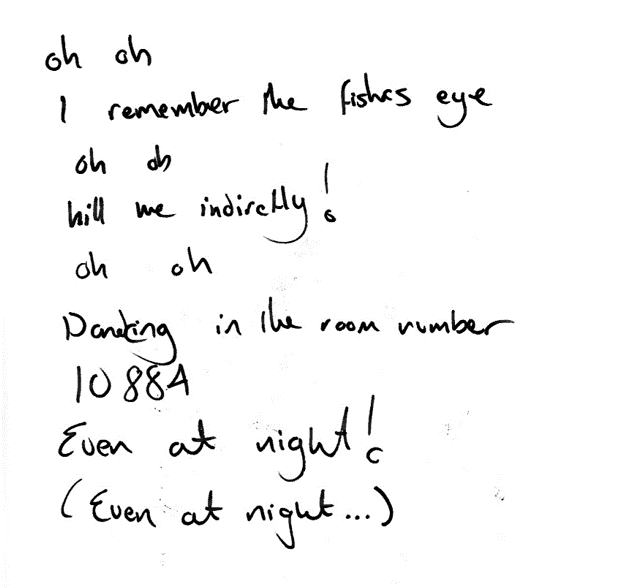 oh oh
I remember the fishes eye
oh oh
kill me indirectly!
oh oh
Dancing in the room number
10884
Even at night!
(Even at night...)